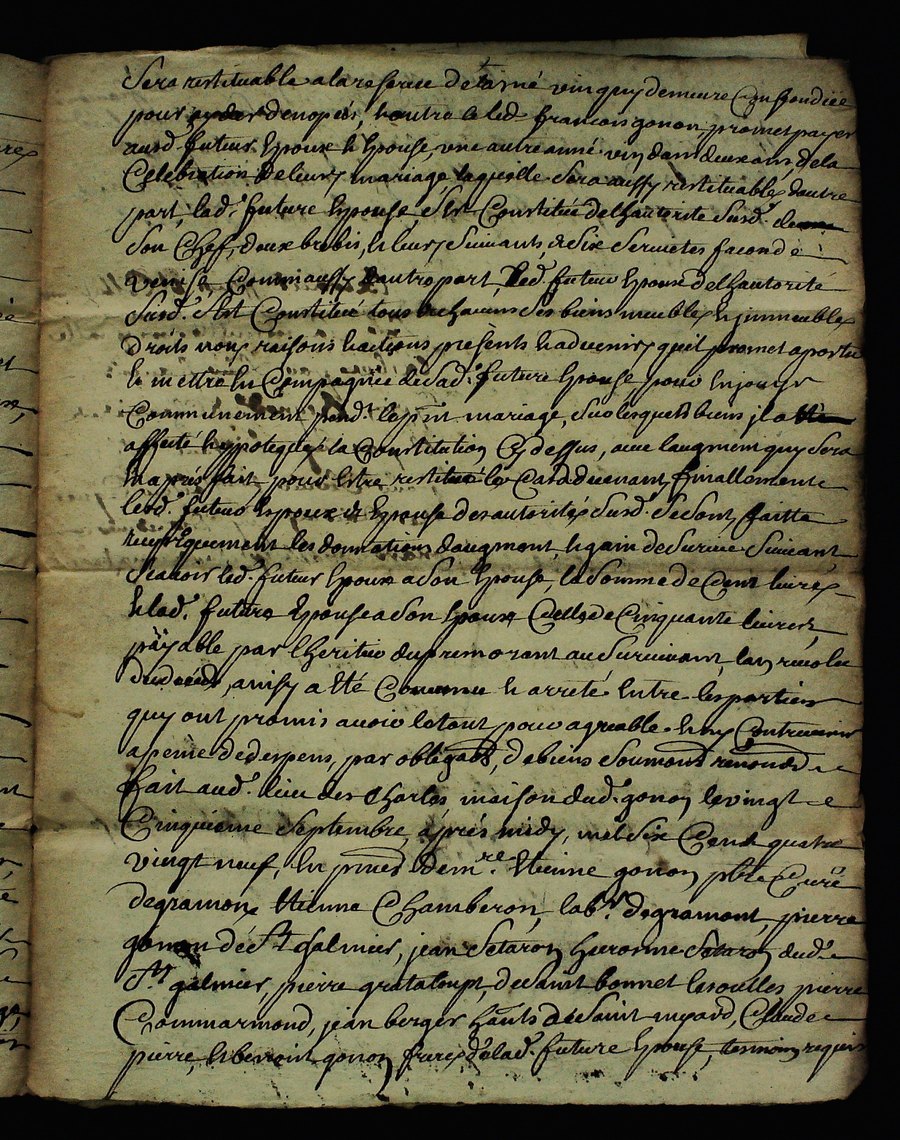 Sera restituable a la reserve de vin quy demeure Confondüe
pour denopces, houtre ce led francois gonon promet payer
ausd.t futeurs Epoux h Epouse, une autre anné vin dans deux ans, de la
Celebration de leurs mariage, laquelle Sera aussy restituable, dautre
part, lad.e future Epouse S'est Constitué de lhautorité Susd.e de
Son Chef, deux brebis, h leurs Suivants & Six Servietes facon de
venise Comm'aussy d'autre part, led.t futeur Epoux de lhautorité
Susd.e S'est Constitué tous h chacuns Ses biens meubles h jmmeubles
droits noms raisons h actions présents h advenirs quil promet aporter
h mettre En Compagnie de Sad.e future Epouse pour En jouyr
Communément pend.t le pnt mariage, Sur lesquels biens jl a
affecté h hypotequé la Constitution Cy dessus, avec laugment quy Sera
En apres fait pour Estre restitué le Cas advenant, finallement
lesd.t futeur Epoux & Epouse des autorités Susd.e Se Sont faitte
reciproquement les donnations daugment, h gain de Survie Suivant
Scavoir led.t futeur Epoux a Son Epouse, la Somme de Cent livres
h lad.e future Epouse a Son Epoux Celle de Cinquante livres,
payable par lheritier du premorant au Survivant, lan revolu
du deceds, ainsy a Eté Convenu h arreté Entre les parties
quy ont promis avoir le tout pour agreable h ny Contrevenir
a peine de despens, par obligaôn, de biens Soumons renond
fait aud.t lieu des Charles maison dud.t gonon le vingt
Cinquieme Septembre, aprés midy, mil Six Cent quatre
vingt neuf, En pnces De m.re Etienne gonon, pbre Curé
de gramon Etienne Chamberon, lab.r de gramont, pierre
gonon de S.t Galmier, jean Setaron hieronme Setaron dud.t
S.t galmier, pierre grataloupt, de Saint bonnet les oulles pierre
Commarmond, jean berger hants de Saint medard, Claude
pierre, h benoit gonon freres de lad.e future Epouse, temoins requis